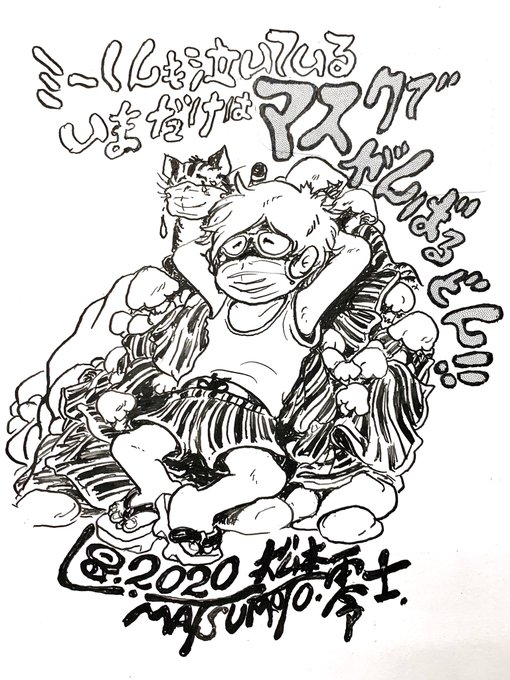 ミーくんも泣いている
いまだけはマスクで
がんばるべし!!
2020 松本零士.
MATSUMOTO.